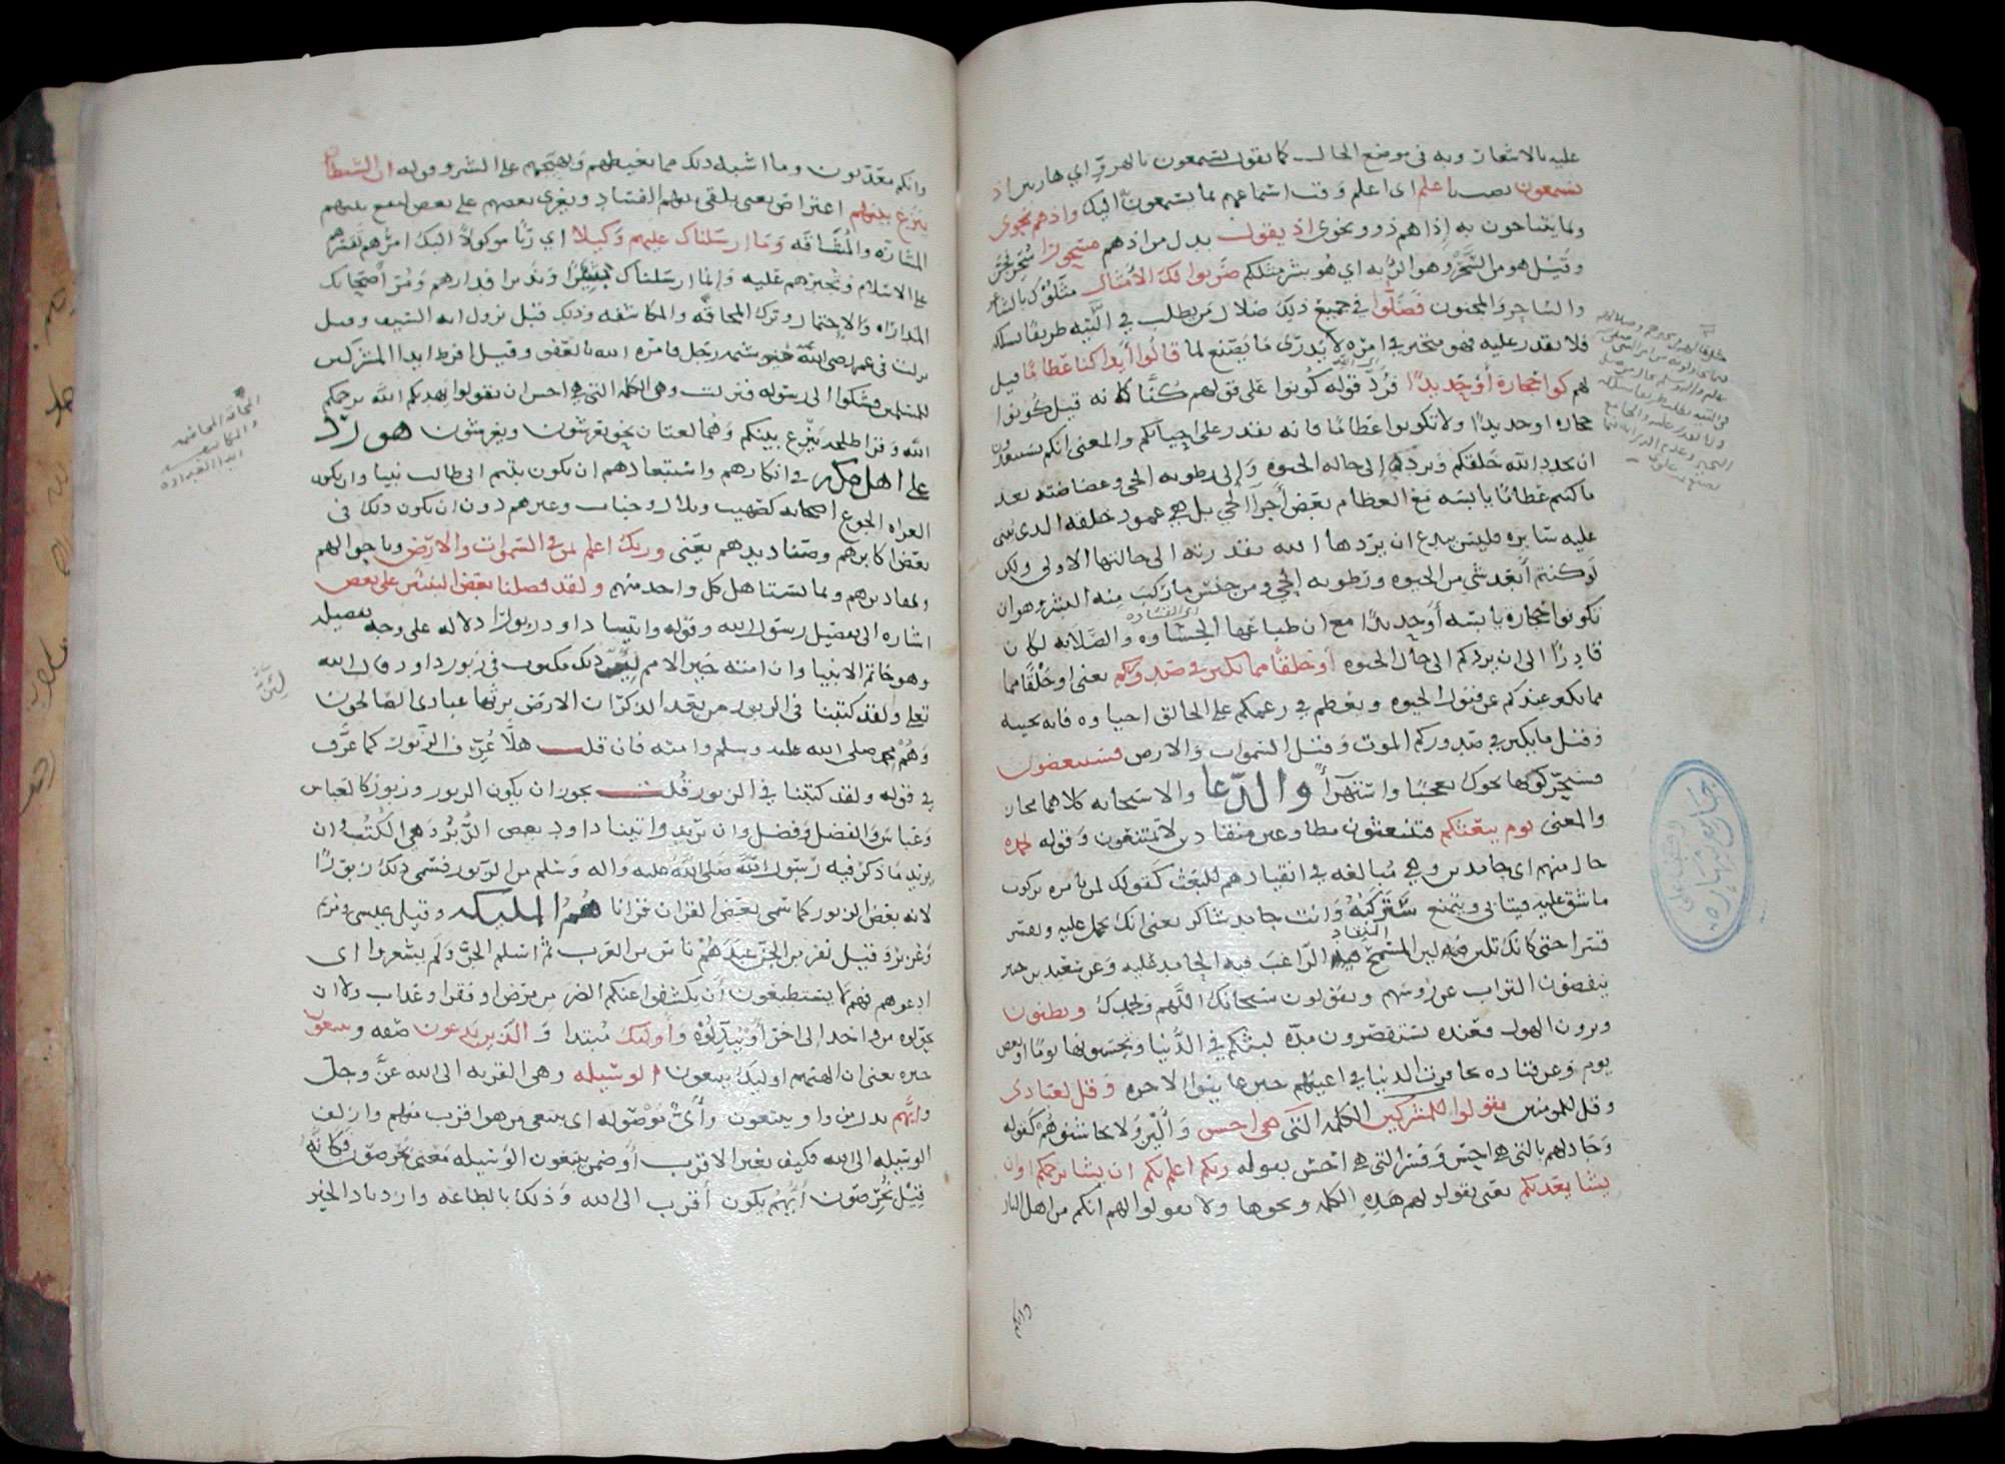 عليه بالاشعار وبه في موضع الحال كما تقول يستمعون بالهزؤ اي هازين اذ
يستمعون نصب باعلم اي اعلم وقت استماعهم بما يستمعون اليك واذ هم نجوى
وبما يتناجون به اذا هم ذوو نجوى اذ يقول بدل من اذ هم مسحورا سحر فجن
وقيل هو من السحر وهو الرئه اي هو بشر مثلكم ضربوا لك الامثال مثلوك بالشاعر
والساحر والمجنون فضلوا في جميع ذلك ضلال من يطلب في التيه طريقا يسلكه
فلا يقدر عليه فهو متحير في امره لا يدرى ما يصنع لما قالوا أيذا كنا عظاما قيل
لهم كونوا حجارة أو حديدا فرد قوله كونوا على قولهم كنا كانه قيل كونوا
حجاره او حديدا ولا تكونوا عظاما فانه يقدر على احيآئكم والمعنى انكم تستبعدون
ان يجدد الله خلقكم ويردكم إلى حاله الحيوه وإلى رطوبه الحي وغضاضته بعد
ما كنتم عظاما يابسه مع العظام بعض أجزا الحي بل هي عمود خلقه الدى يبنى
عليه سايره فليس ببدع ان يردها الله بقدرته الى حالتها الاولى ولكن
لو كنتم أبعد شي من الحيوه ورطوبه الحي ومن جنس ما ركب منه البشر وهو ان
تكونوا حجارة يابسه أو حديدا مع ان طباعها الجساوه والصلابه لكان
قادرا الى ان يردكم الى حال الحيوه او خلقا مما يكبر في صدوركم يعنى او خلقا مما
مما يكبر عندكم عن قبول الحيوه ويعظم في زعمكم على الخالق احياوه فانه يحييه
وقيل ما يكبر في صدوركم الموت وقيل السموات والارض فسينغضون
فسيحركونها نحوك تعجبا واستهزآء والدعا والاستجابه كلاهما مجاز
والمعنى يوم يبعثكم فتنبعثون مطاوعين منقادين لا تمتنعون وقوله بحمده
حال منهم اي حامدين وهي مبالغه في انقيادهم للبعث كقولك لمن تامره بركوب
ما شق عليه فيتابى ويتمنع ستركبه وانت حامد شاكر يعنى انك تحمل عليه وتقسر
قسرا حتى كانك تلين لين المسمح الراغب فيه الحامد عليه وعن سعيد بن جبير
ينفضون التراب عن روسهم ويقولون سبحانك اللهم وبحمدك وتظنون
وترون الهول فعنده تستقصرون مده لبثكم في الدنيا وتحسبونها يوما او بعض
يوم وعن قتاده تحاقرت الدنيا في اعينهم حين عاينوا الاخره وقل لعبادى
وقل للمومنين يقولوا للمشركين الكلمه التي هي احسن وألين ولا يخاشنوهم كقوله
وجادلهم بالتي هي احسن وفسر التي هي احسن بقوله ربكم اعلم بكم ان يشا يرحمكم او ان
يشا يعذبكم يعنى يقولوا لهم هذه الكلمه ونحوها ولا يقولوا لهم انكم من اهل النار
وانكم
وانكم معذبون وما اشبه ذلك مما يغيظهم ويهيجهم على الشر وقوله ان الشيطان
ينزغ بينهم اعتراض يعنى يلقي بينهم الفساد ويغري بعضهم على بعض ليقع بينهم
المشاره والمشاقه وما ارسلناك عليهم وكيلا اي ربا موكولا اليك امرهم تقسرهم
على الاسلام وتجبرهم عليه وإنما ارسلناك بشيرا ونذيرا فدارهم ومر أصحابك
بالمداراه والاحتمال وترك المحاقه والمكاشفه وذلك قبل نزول ايه السيف وقيل
نزلت في عمر رضي الله عنه شتمه رجل فامره الله بالعفو وقيل افرط ايدا المشركين
للمسلمين فشكوا الى رسوله فنزلت وهي الكلمه التي هي احسن ان يقولوا يهديكم الله يرحمكم
الله وقرا طلحه ينزغ بينكم وهما لغتان نحو يعرشون ويعرشون هو رد
على اهل مكه في انكارهم واستبعادهم ان يكون يتيم ابي طالب نبيا وان يكون
العراه الجوع اصحابه كصهيب وبلال وخباب وغيرهم دون ان يكون ذلك في
بعض اكابرهم وصناديدهم يعني وربك اعلم بمن في السموات والارض وباحوالهم
ومقاديرهم وبما يستاهل كل واحد منهم ولقد فضلنا بعض النبيين على بعض
اشاره الى تفضيل رسول الله وقوله واتينا داود زبورا دلاله على وجه تفضيله
وهو خاتم الانبيا وان امته خير الامم ذلك مكتوب في زبور داود قال الله
تعلى ولقد كتبنا في الزبور من بعد الذكر ان الارض يرثها عبادى الصالحون
وهم محمد صلى الله عليه وسلم وامته فان قلت هلا عرف الزبور كما عرف
في قوله ولقد كتبنا في الزبور قلت يجوز ان يكون الزبور وزبور كالعباس
وعباس والفضل وفضل وان يريد واتينا داود بعض الزبر وهي الكتب وان
يريد ما ذكر فيه رسول الله صلى الله عليه واله وسلم من الزبور فسمى ذلك زبورا
لانه بعض الزبور كما سمى بعض القران قرانا هم المليكه وقيل عيسى ومريم
وعزير وقيل نفر من الجن عبدهم ناس من العرب ثم اسلم الجن ولم يشعروا اى
ادعوهم فهم لا يستطيعون أن يكشفوا عنكم الضر من مرض او فقر او عذاب ولا ان
يحولوه من واحد الى اخر أو يبدلوه وأولئك مبتدا و الذين يدعون صفه ويبتغون
خبره يعنى ان الهتهم اوليك يبتغون الوسيله وهي القربه الى الله عز وجل
وايهم بدل من واو يبتغون وأي موصوله اي يبتغى من هو اقرب منهم وازلف
الوسيله الى الله فكيف بغير الاقرب أو ضمن يبتغون الوسيله معنى يحرصون فكانه
قيل يحرصون أيهم يكون أقرب الى الله وذلك بالطاعه وازدياد الخير
المحاقه المخاصمه
والمكاشفه
ابدا العداوه